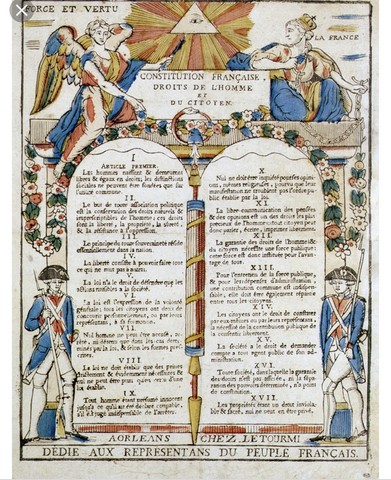 FORCE ET VERTU
LA FRANCE
CONSTITUTION FRANÇAISE,
DROITS DE L'HOMME
ET
DU CITOYEN.
I
ARTICLE PREMIER.
Les hommes naissent & demeurent
libres & égaux en droits, les distinctions
sociales ne peuvent être fondées que sur
l'utilité commune.
II.
Le but de toute association politique
est la conservation des droits naturels &
imprescriptibles de l'homme; ces droits
sont la liberté, la propriété, la sûreté,
& la résistance à l'oppression.
III.
Le principe de toute souveraineté réside
essentiellement dans la nation.
IV.
La liberté consiste à pouvoir faire tout
ce qui ne nuit pas à autrui.
V.
La loi n'a le droit de défendre que les
actions nuisibles à la société.
VI.
La loi est l'expression de la volonté
générale; tous les citoyens ont droit de
concourir personnellement, ou par leurs
représentans, à sa formation.
VII.
Nul homme ne peut être accusé, arrêté,
ni détenu que dans les cas déterminés
par la loi, & selon les formes prescrites.
VIII
La loi ne doit établir que des peines
strictement & évidemment nécessaires &
nul ne peut être puni qu'en vertu d'une
loi établie.
IX
Tout homme étant présumé innocent
jusqu'à ce qu'il ait été déclaré coupable,
s'il est jugé indispensable de l'arrêter.
X.
Nul ne doit être inquiété pour ses opinions,
mêmes religieuses, pourvu que leur
manifestation ne trouble pas l'ordre public
établi par la loi.
XI.
La libre communication des pensées
& des opinions est un des droits les plus
précieux de l'homme; tout citoyen peut
donc parler, écrire, imprimer librement.
XII.
La garantie des droits de l'homme & du
citoyen nécessite une force publique;
cette force est donc instituée pour l'avantage
de tous.
XIII.
Pour l'entretien de la force publique,
& pour les dépenses d'administration,
une contribution commune est indispensable,
elle doit être également répartie
entre tous les citoyens.
XIV.
Les citoyens ont le droit de constater
par eux-mêmes ou par leurs représentans,
la nécessité de la contribution publique &
la consentir librement.
XV.
La société a le droit de demander
compte à tout agent public de son administration.
XVI.
Toute société, dans laquelle la garantie
des droits n'est pas assurée, ni la séparation
des pouvoirs déterminée, n'a point
de constitution.
XVII.
Les propriétés étant un droit inviolable
& sacré, nul ne peut en être privé.
A ORLEANS CHEZ LETOURMI
DÉDIÉ AUX REPRÉSENTANS DU PEUPLE FRANÇAIS.